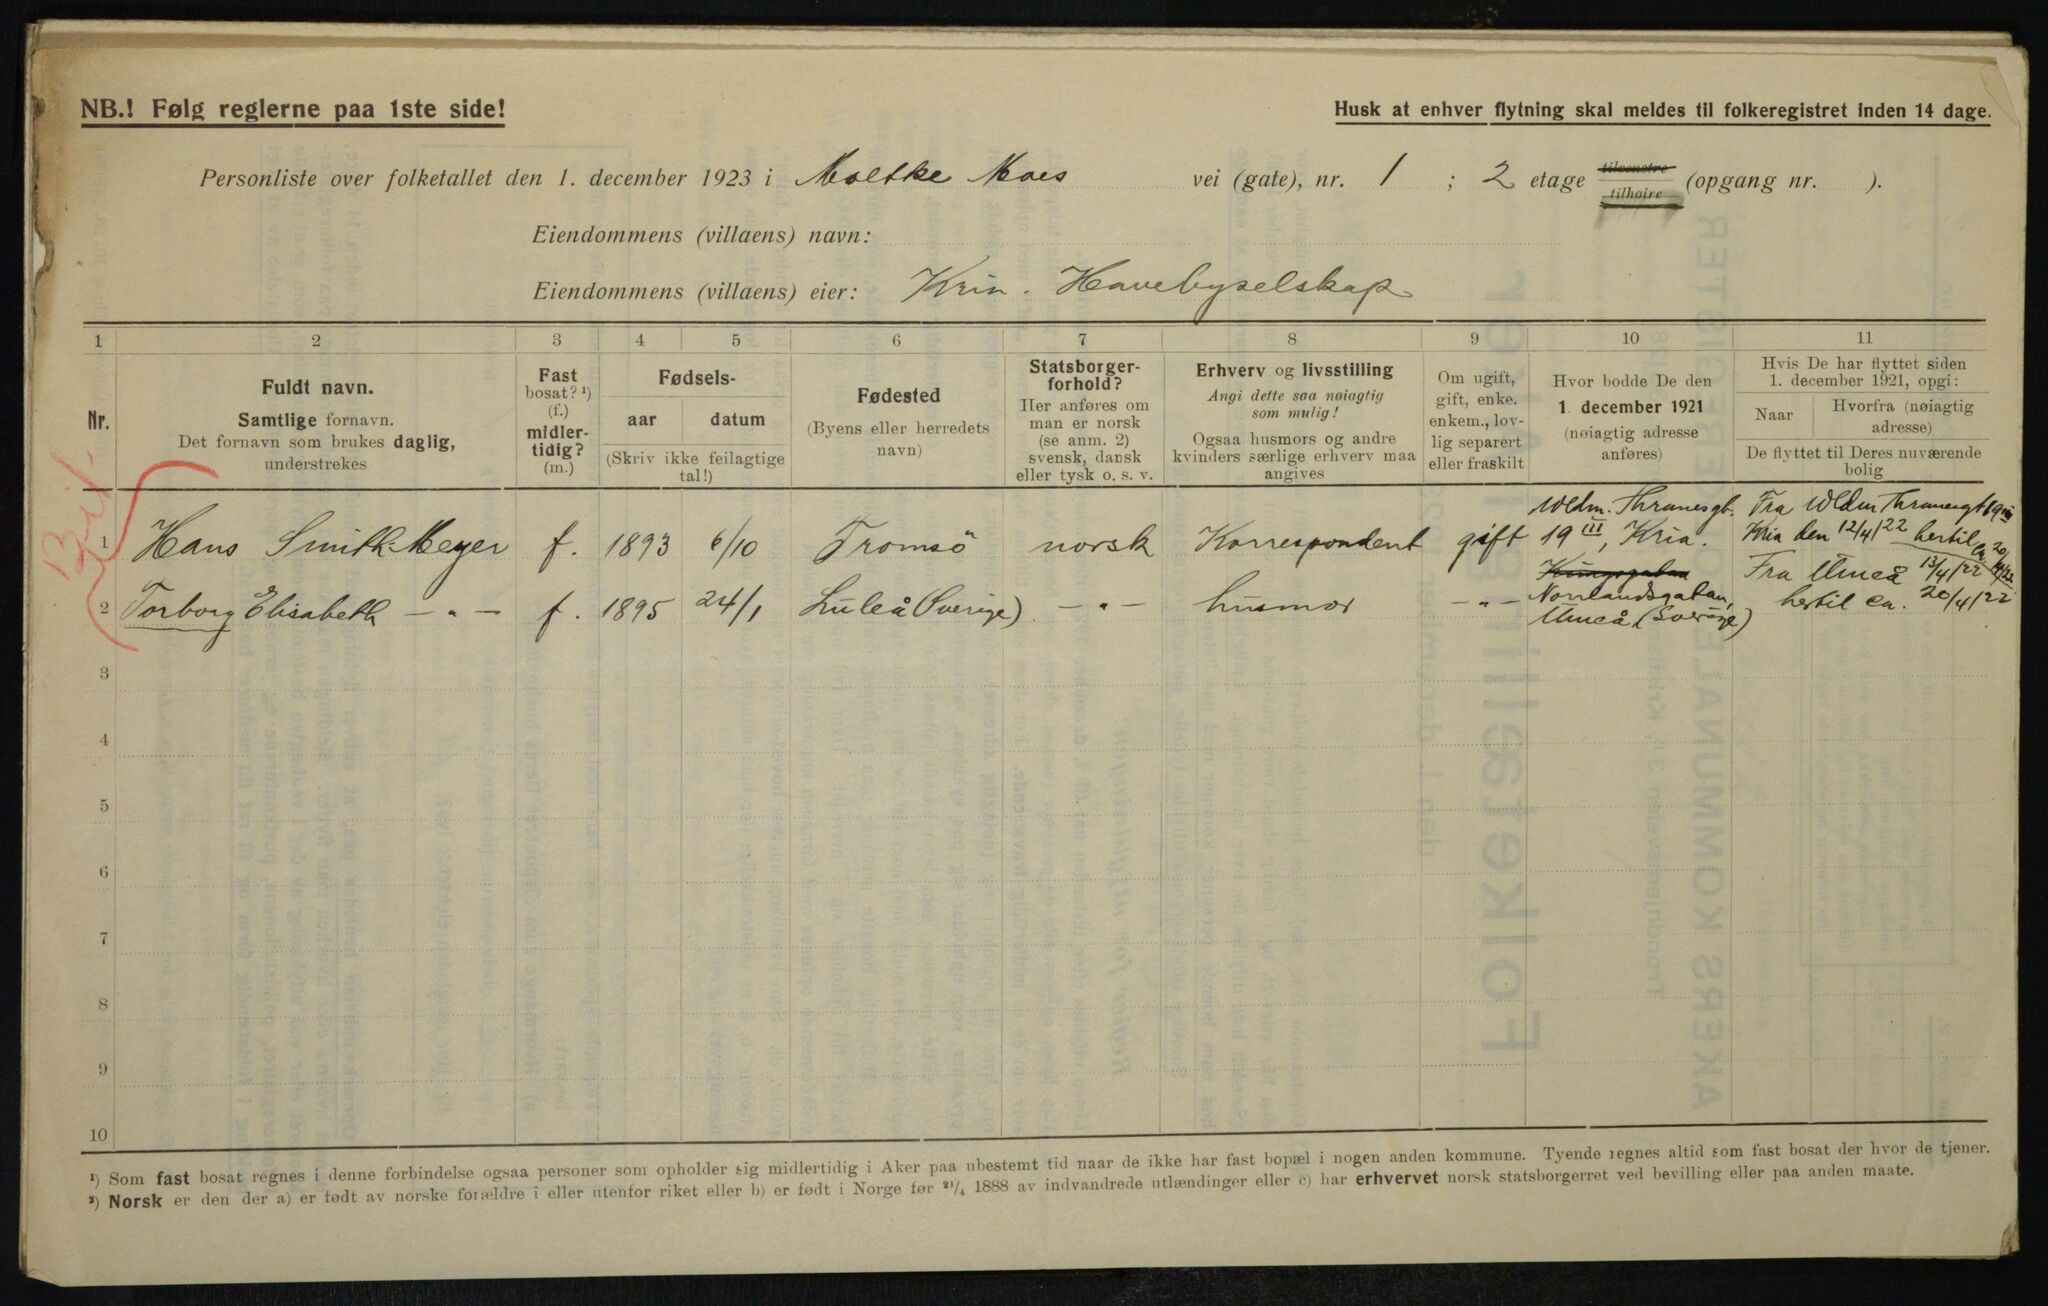 NB.! Følg reglerne paa 1ste side!
Husk at enhver flytning skal meldes til folkeregistret inden 14 dage.
Personliste over folketallet den 1. december 1923 i Moltke Moes vei (gate), nr. 1 ; 2 etage tilvenstre tilhøire (opgang nr. ).
Eiendommens (villaens) navn:
Eiendommens (villaens) eier: Kria. Havebyselskap
1 2 3 4 5 6 7 8 9 10 11
Nr.
Fuldt navn.
Samtlige fornavn.
Det fornavn som brukes daglig,
understrekes
Fast
bosat? ¹)
(f.)
midler-
tidig?
(m.)
Fødsels-
aar datum
(Skriv ikke feilagtige
tal!)
Fødested
(Byens eller herredets
navn)
Statsborger-
forhold?
Her anføres om
man er norsk
(se anm. 2)
svensk, dansk
eller tysk o. s. v.
Erhverv og livsstilling
Angi dette saa nøiagtig
som mulig!
Ogsaa husmors og andre
kvinders særlige erhverv maa
angives
Om ugift,
gift, enke.
enkem., lov-
lig separert
eller fraskilt
Hvor bodde De den
1. december 1921
(nøiagtig adresse
anføres)
Hvis De har flyttet siden
1. december 1921, opgi:
Naar
Hvorfra (nøiagtig
adresse)
De flyttet til Deres nuværende
bolig
1 Hans Smith Meyer f. 1893 6/10 Tromsö norsk Korrespondent gift
Woldm. Thranesgt.
19 III, Kria.
Fra Woldm Thranesgt 19 III
Kria den 12/4/22 hertil
ca 20/4/22
2 Torborg Elisabeth —"— f. 1895 24/1 Luleå (Sverige) —"— husmor —"—
Kungsgatan
Norrlandsgatan,
Umeå (Sverige)
Fra Umeå 13/4/22
hertil ca. 20/4/22
3
4
5
6
7
8
9
10
¹) Som fast bosat regnes i denne forbindelse ogsaa personer som opholder sig midlertidig i Aker paa ubestemt tid naar de ikke har fast bopæl i nogen anden kommune. Tyende regnes altid som fast bosat der hvor de tjener.
²) Norsk er den der a) er født av norske forældre i eller utenfor riket eller b) er født i Norge før ²¹/₄ 1888 av indvandrede utlændinger eller c) har erhvervet norsk statsborgerret ved bevilling eller paa anden maate.